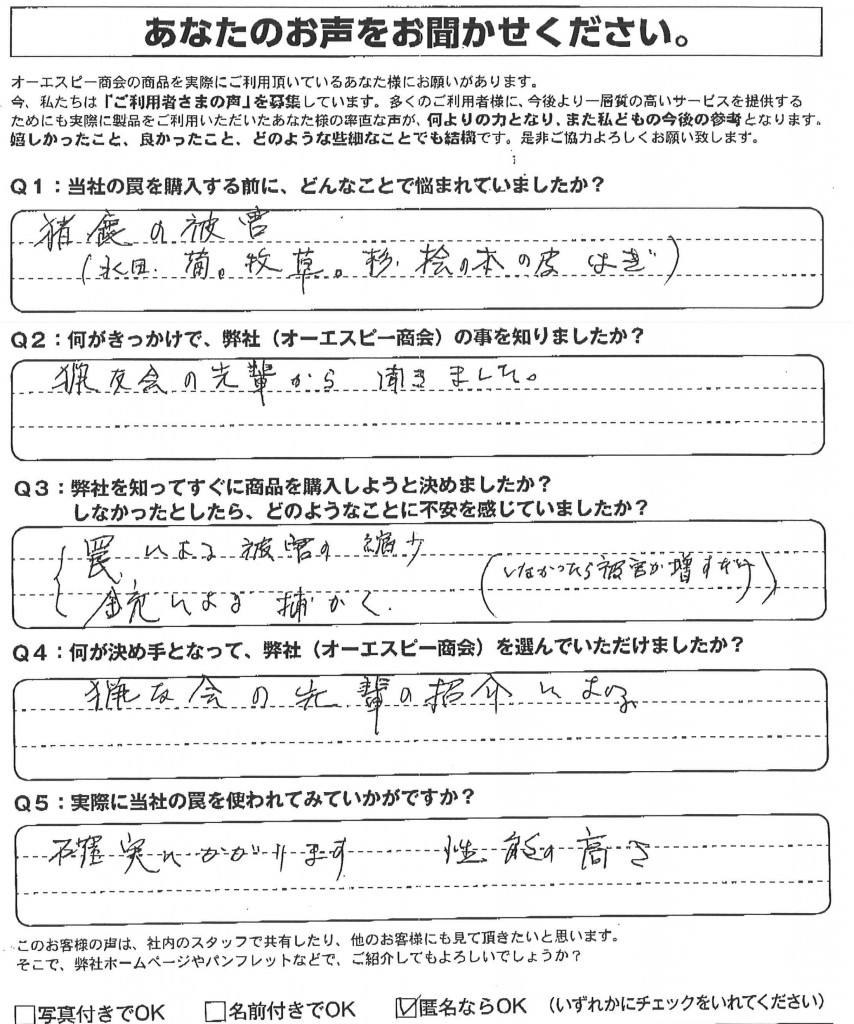 あなたのお声をお聞かせください。
オーエスピー商会の商品を実際にご利用頂いているあなた様にお願いがあります。
今、私たちは『ご利用者さまの声』を募集しています。多くのご利用者様に、今後より一層質の高いサービスを提供する
ためにも実際に製品をご利用いただいたあなた様の率直な声が、何よりの力となり、また私どもの今後の参考となります。
嬉しかったこと、良かったこと、どのような些細なことでも結構です。是非ご協力よろしくお願い致します。
Q1：当社の罠を購入する前に、どんなことで悩まれていましたか？
猪鹿の被害
(水田. 菊。牧草。杉. 桧の木の皮はぎ)
Q2：何がきっかけで、弊社（オーエスピー商会）の事を知りましたか？
猟友会の先輩から聞きました。
Q3：弊社を知ってすぐに商品を購入しようと決めましたか？
しなかったとしたら、どのようなことに不安を感じていましたか？
罠による被害の縮少
(しなかったら被害が増すだけ)
銃による捕かく.
Q4：何が決め手となって、弊社（オーエスピー商会）を選んでいただけましたか？
猟友会の先輩の紹介による
Q5：実際に当社の罠を使われてみていかがですか？
確実にかかります 性能の高さ
このお客様の声は、社内のスタッフで共有したり、他のお客様にも見て頂きたいと思います。
そこで、弊社ホームページやパンフレットなどで、ご紹介してもよろしいでしょうか？
□写真付きでOK □名前付きでOK ☑匿名ならOK （いずれかにチェックをいれてください）